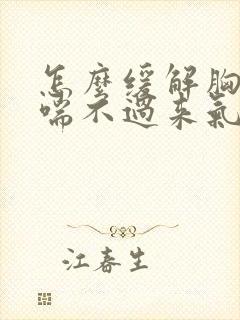 怎麼緩解胸
喘不過來氣
江春生